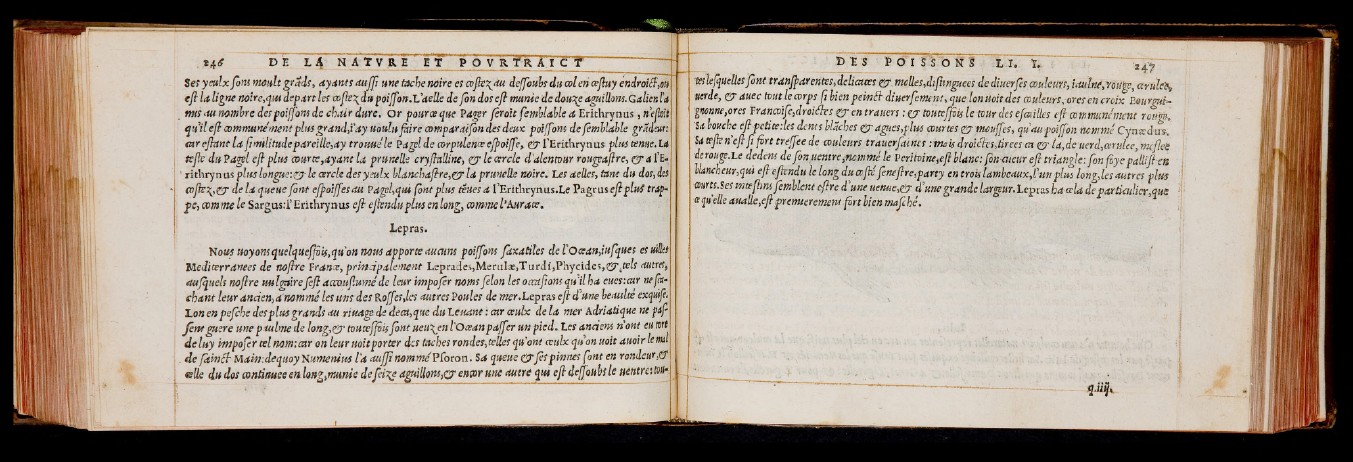 246 DE LA NATVRE ET POVRTRAICT
Ses yeulx sont moult grãds, ayants aussi une tache noire es costez au dessoubs du col en cestuy endroict, ou
est la ligne noire, qui depart les costez du poisson. L'aelle de son dos est munie de douze aguillons. Galien l'a
mis au nombre des poissons de chair dure. Or pource que Pager seroit semblable a Erithrynus, n'estoit
qu'il est communément plus grand, i'ay uoulu faire comparaison des deux poissons de semblable grãdeur:
car estant la similitude pareille, ay trouué le Pagel de corpulence espoisse, & l'Erithrynus plus tenue. La
teste du Pagel est plus courte, ayant la prunelle crystalline, & le cercle d'alentour rougeastre, & a l'E-
rithrynus plus longue: & le cercle des yeulx blanchastre, & la prunelle noire. Les aelles, tant du dos, des
costez, & de la queue sont espoisses au Pagel, qui sont plus tẽues a l'Erithrynus. Le Pagrus est plus trap-
pe, comme le Sargus: l'Erithrynus est estendu plus en long, comme l'Aurate.
Lepras.
Nous uoyons quelquesfois, qu'on nous apporte aucuns poissons saxatiles de l'Ocean, iusques es uilles
Mediterranees de nostre France, principalement Leprades, Merulæ, Turdi, Phycides, & tels autres,
ausquels nostre uulgaire s'est accoustumé de leur imposer noms selon les occasions qu'il ha eues: car ne sça-
chant leur ancien, a nommé les uns des Rosses, les autres Poules de mer. Lepras est d'une beaulté exquise.
Lon en pesche des plus grands au riuage de deça, que du Leuant: car ceulx de la mer Adriatique ne pas-
sent guere une paulme de long, & toutesfois sont ueuz en l'Ocean passer un pied. Les anciens n'ont eu tort
de luy imposer tel nom: car on leur uoit porter des taches rondes, telles qu'ont ceulx qu'on uoit auoir le mal
de sainct Main: dequoy Numenius l'a aussi nommé Psoron. Sa queue & ses pinnes sont en rondeur, &
celle du dos continuee en long, munie de seize aguillons, & encor une autre qui est dessoubs le uentre: tou-
DES POISSONS LI. I. 247
tes lesquelles sont transparentes, delicates & molles, distinguees de diuerses couleurs, iaulne, rouge, cerulee,
uerde, & auec tout le corps si bien peinct diuersement, que lon uoit des couleurs, ores en croix Bourgui-
gnonne, ores Francoise, droictes & en trauers: & toutesfois le tour des escailles est communément rouge.
Sa bouche est petite: les dents blãches & agues, plus courtes & mousses, qu'au poisson nommé Cynœdus.
Sa teste n'est si fort tressee de couleurs trauersantes: mais droictes, tirees ca & la, de uerd, cerulee, meslee
de rouge. Le dedens de son uentre, nommé le Peritoine, est blanc: son cueur est triangle: son foye pallist en
blancheur, qui est estendu le long du costé senestre, party en trois lambeaux, l'un plus long, les autres plus
courts. Ses intestins semblent estre d'une uenue, & d'une grande largeur. Lepras ha cela de particulier, que
ce qu'elle aualle, est premierement fort bien masché.
q.iiij.